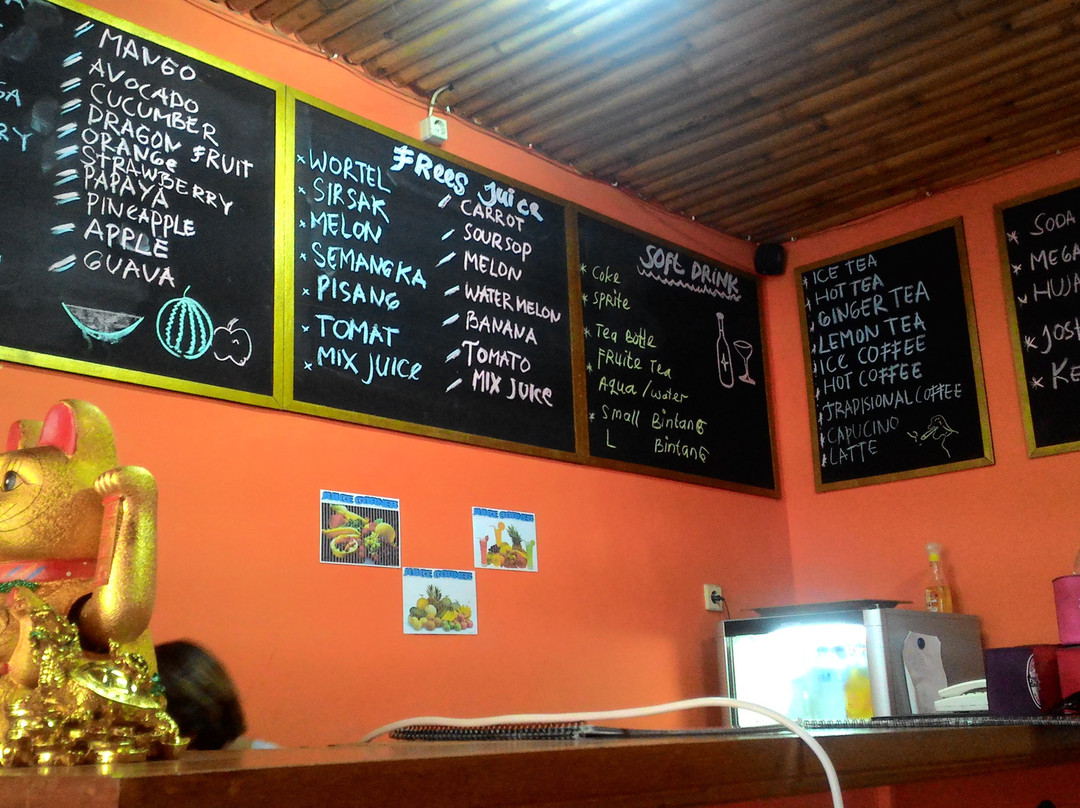 MANGO
AVOCADO
CUCUMBER
DRAGON FRUIT
ORANGE
STRAWBERRY
PAPAYA
PINEAPPLE
APPLE
GUAVA
FREES JUICE
WORTEL
SIRSAK
MELON
SEMANGKA
PISANG
TOMAT
MIX JUICE
CARROT
SOURSOP
MELON
WATER MELON
BANANA
TOMATO
MIX JUICE
SOFT DRINK
Coke
SPRITE
Tea Botle
FRuite Tea
Aqua / water
Small Bintang
L Bintang
ICE TEA
HOT TEA
GINGER TEA
LEMON TEA
ICE COFFEE
HOT COFFEE
TRADISIONAL COFFEE
CAPUCINO
LATTE
SODA
MEGA
HUJA
JOSH
KE
JUICE CORNER
JUICE CORNER
JUICE CORNER